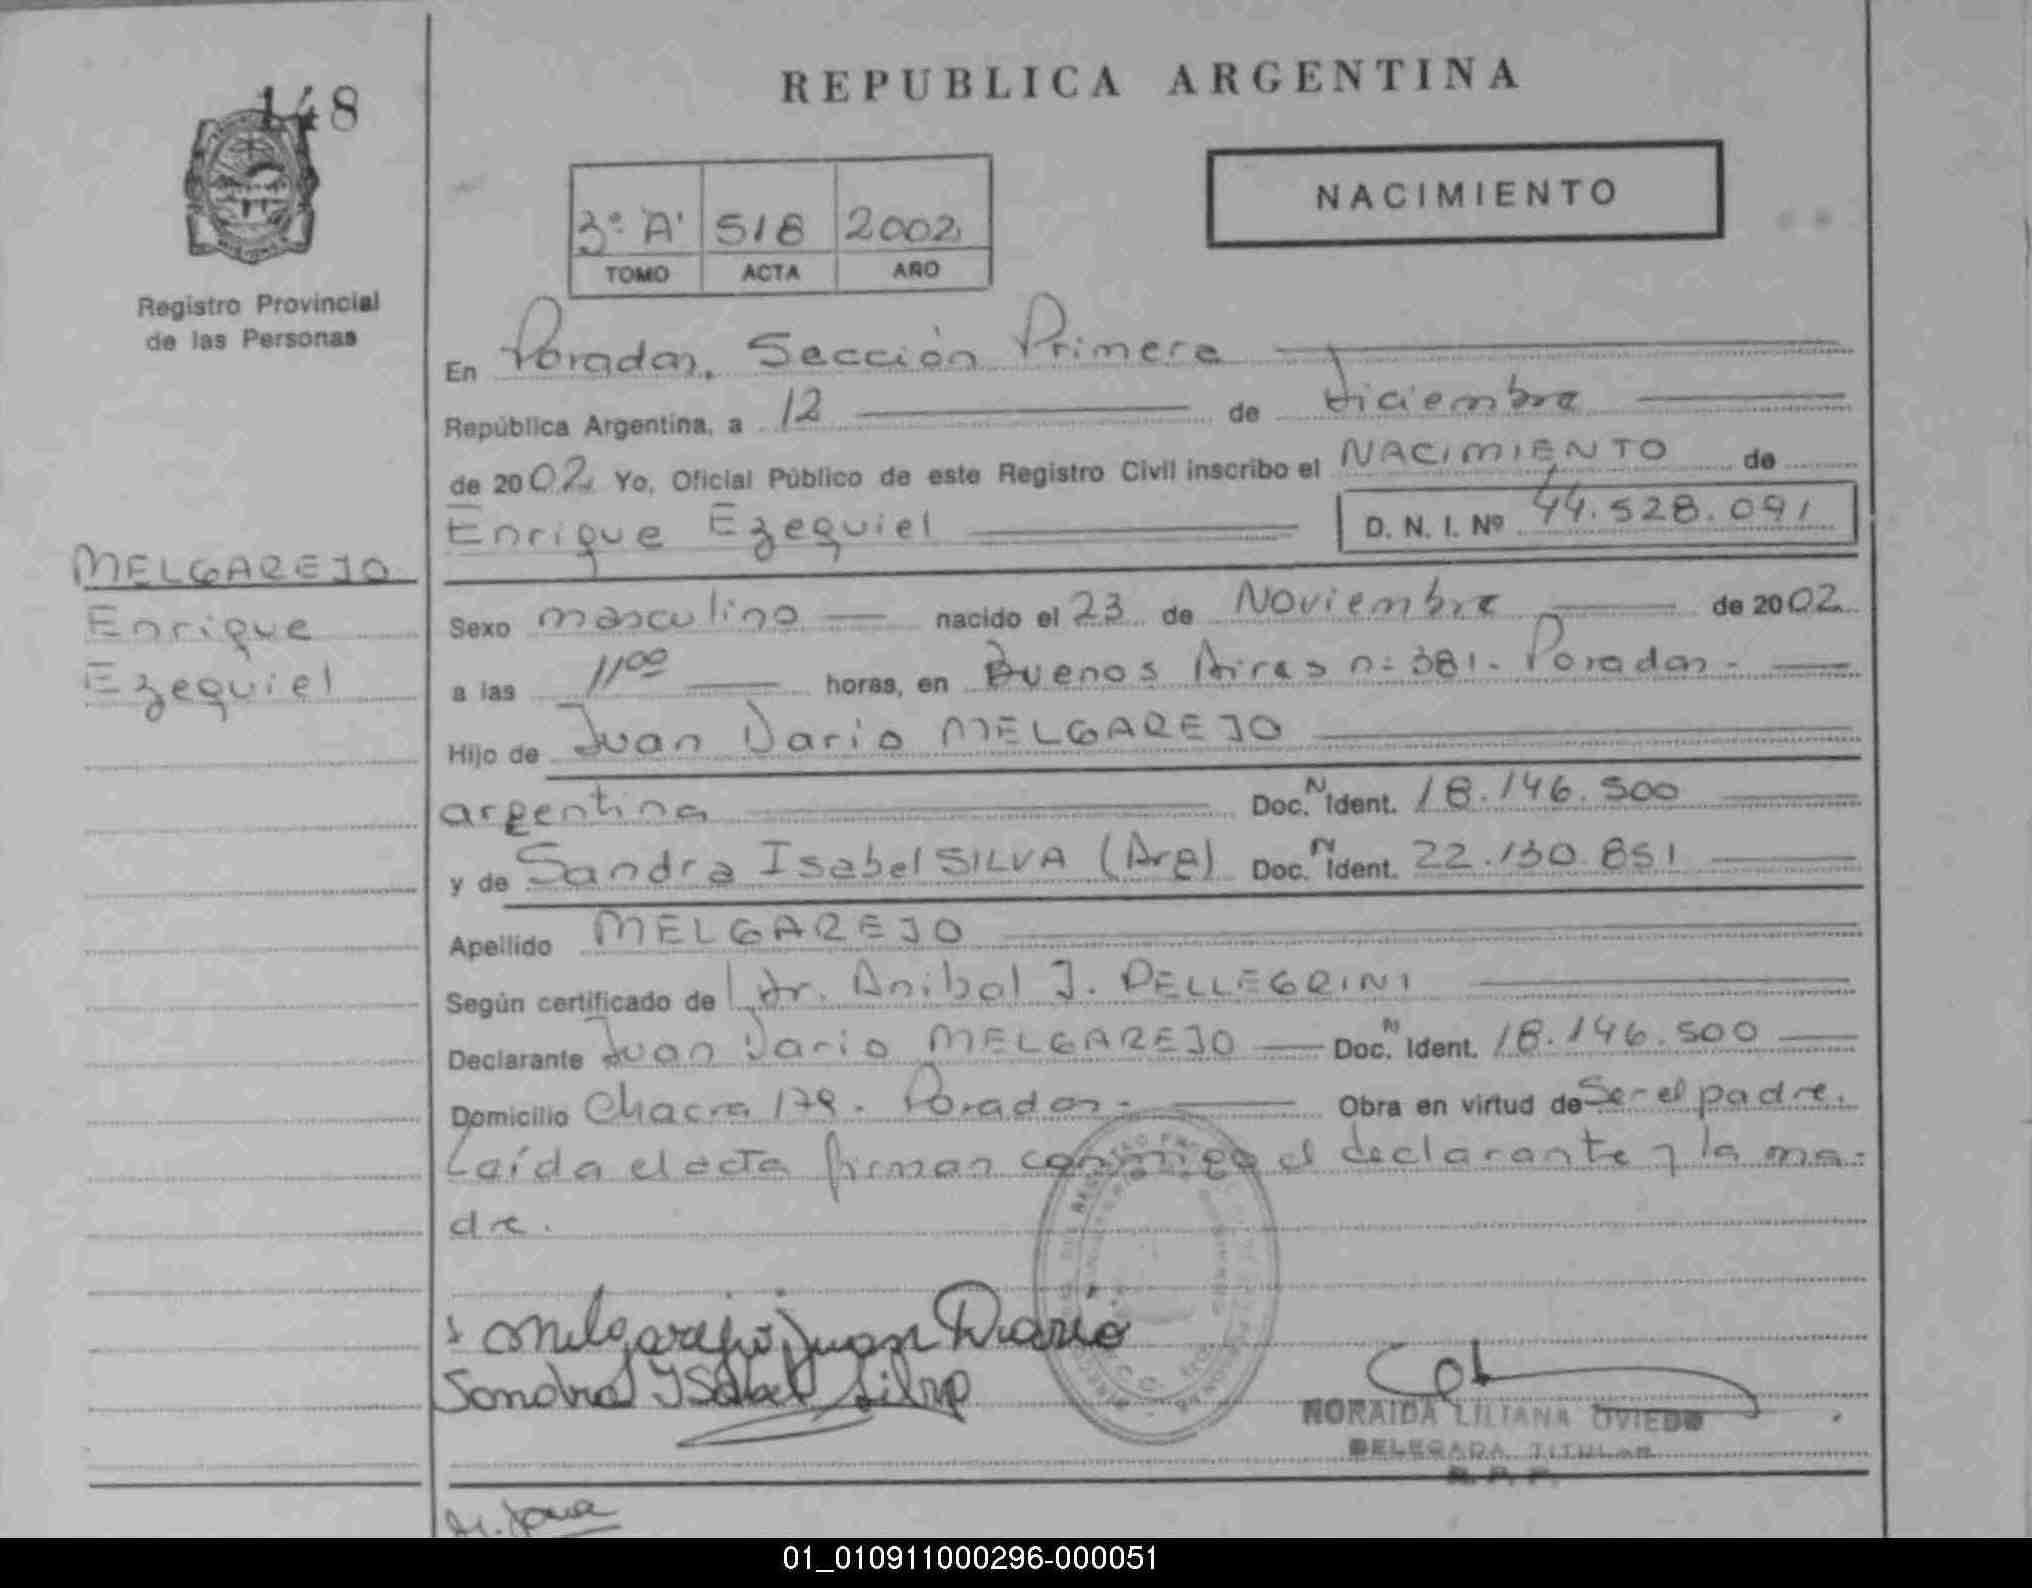 148
REPUBLICA ARGENTINA
NACIMIENTO
3º "A" 518 2002
TOMO ACTA AÑO
Registro Provincial
de las Personas
En Posadas, Sección Primera
República Argentina, a 12 de diciembre
de 2002 Yo, Oficial Público de este Registro Civil inscribo el NACIMIENTO de
Enrique Ezequiel D. N. I. Nº 44.528.091
MELGAREJO
Enrique
Ezequiel
Sexo masculino nacido el 23 de Noviembre de 2002
a las 11 00 horas, en Buenos Aires nº 381. Posadas.
Hijo de Juan Dario MELGAREJO
argentina Doc. N Ident. 18.146.500
y de Sandra Isabel SILVA (Arg) Doc. N Ident. 22.130.851
Apellido MELGAREJO
Según certificado de Dr. Anibal J. PELLEGRINI
Declarante Juan Dario MELGAREJO Doc. N Ident. 18.146.500
Domicilio Chacra 179. Posadas. Obra en virtud de Ser el padre.
Leída el acta firman conmigo el declarante y la ma-
dre.
Melgarejo Juan Dario
Sandra Isabel Silva
NORAIDA LILIANA OVIEDO
DELEGADA TITULAR
R. P. P.
01_010911000296-000051